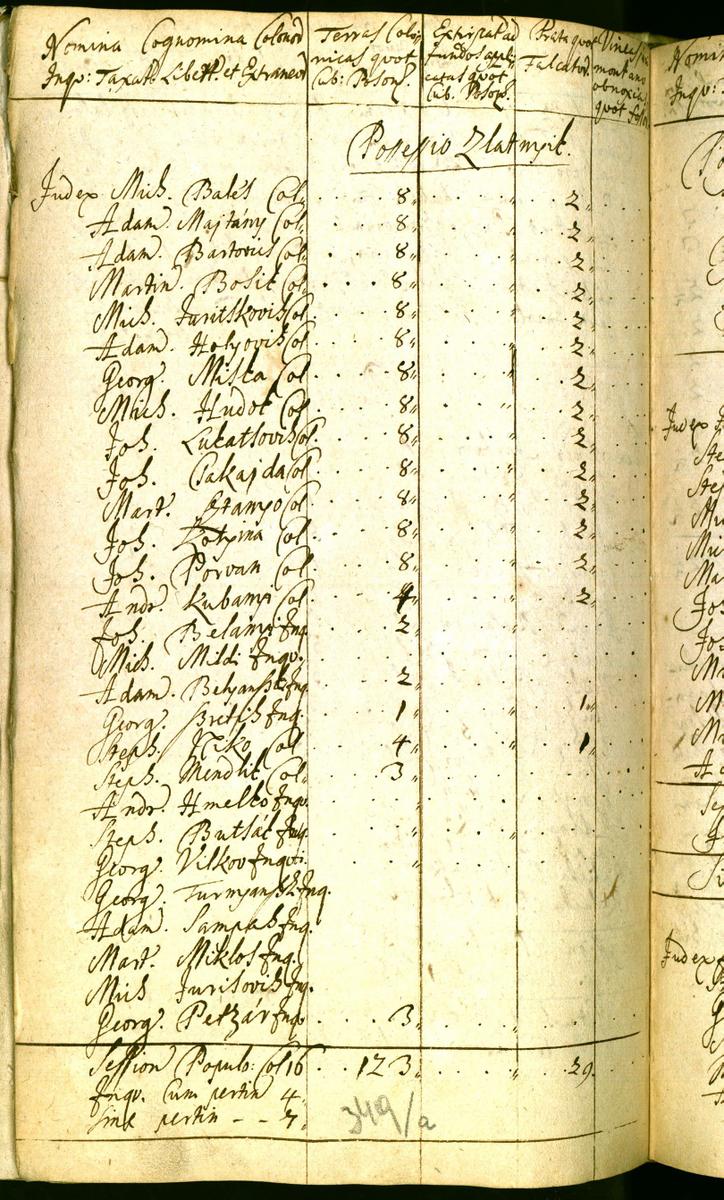 Nomina Cognomina Colonor
Inqv: Taxat: Libett. et Extraneor
Terras Colo
nicas quot
Cub: Poson:
Extirpat ad
fundos appli
catas quot
Cub: Poson:
Prata quot
Falcator.
Vineas
montano
obnoxias
quot
Possessio Zlatnyik.
Judex Mich. Bales Col. 8 2
Adam. Majtány Col. 8 2
Adam. Bartovics Col. 8 2
Martin Bosik Col. 8 2
Mich. Juritskovich Col. 8 2
Adam. Holyovich Col. 8 2
Georg. Miska Col. 8 2
Mich. Hudok Col. 8 2
Joh. Lukatsovich Col. 8 2
Joh. Cakajda Col. 8 2
Mart. Stampo Col. 8 2
Joh. Kotyina Col. 8 2
Joh. Porvan Col. 8 2
Andr. Kubany Col. 4 2
Joh. Belany Inq. 2
Mich. Mildi Inqv.
Adam. Belyanszki Inq. 2
Georg. Britih Inq. 1 1
Steph. Col 4 1
Steph. Mendlik Col. 3
Andr. Hmelko Inqv.
Steph. Butsák Inq.
Georg. Vilkov Inqv.
Georg. Turnyanszki Inq.
Adam. Sampah Inq.
Mart. Miklos Inq.
Mich Jurisovich Inq.
Georg. Petzár Inq. 3
Session Popul: Col 16 123 29
Inqv. Cum pertin 4
sine pertin - - 7
349/a